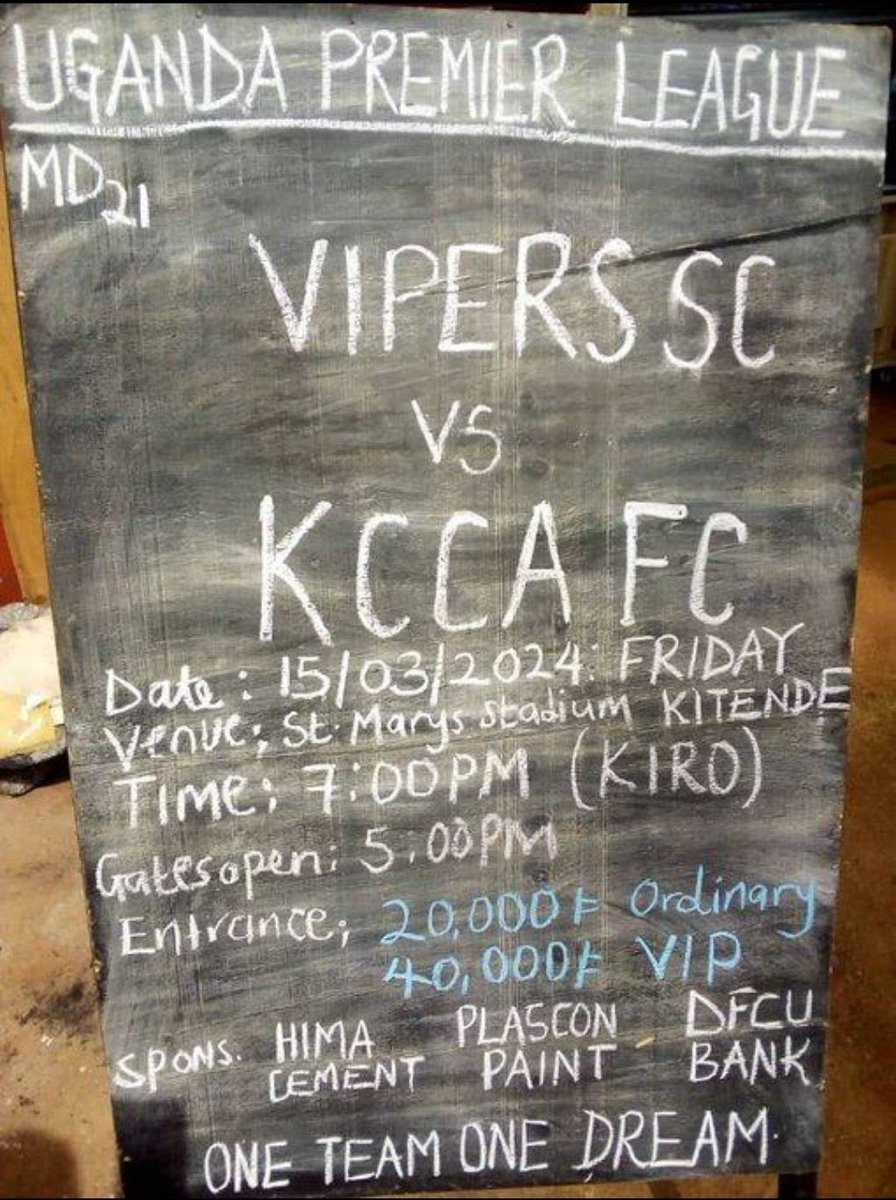 UGANDA PREMIER LEAGUE
MD21
VIPERS SC
VS
KCCA FC
Date: 15/03/2024: FRIDAY
Venue; St. Marys stadium KITENDE
TIME: 7:00PM (KIRO)
Gates open: 5:00PM
Entrance; 20,000/= Ordinary
40,000/= VIP
SPONS. HIMA CEMENT PLASCON PAINT DFCU BANK
ONE TEAM ONE DREAM.